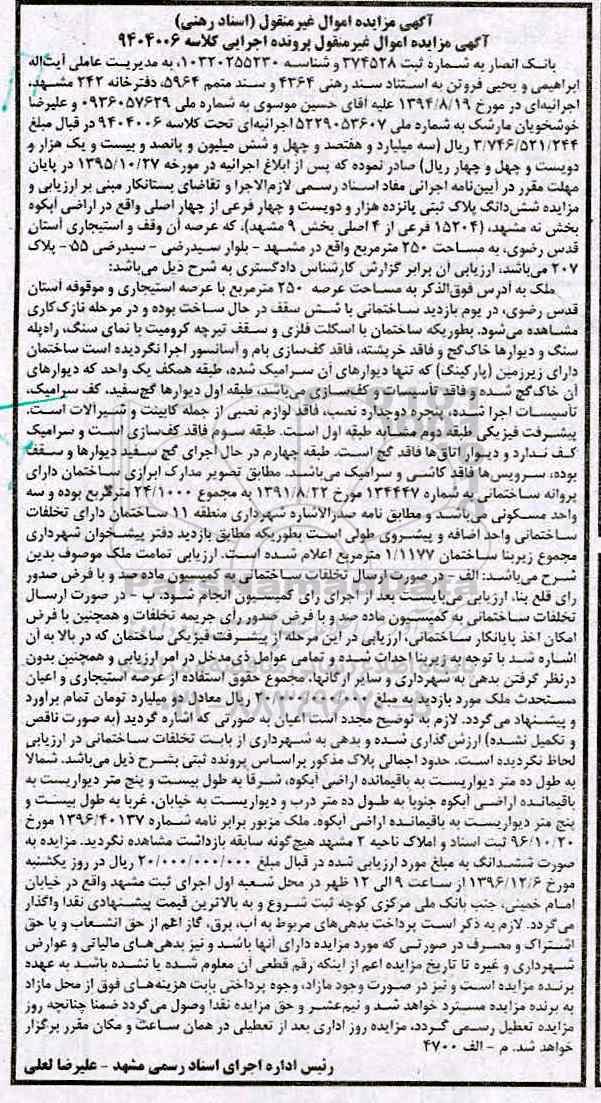 آگهی مزایده اموال غیرمنقول (اسناد رهنی)
آگهی مزایده اموال غیرمنقول پرونده اجرایی کلاسه ۹۴۰۴۰۰۶
بانک انصار به شماره ثبت ۳۷۴۵۲۸ و شناسه ۱۰۳۲۰۲۵۵۲۳۰، به مدیریت عاملی آیت‌اله
ابراهیمی و یحیی فروتن به استناد سند رهنی ۴۳۶۴ و سند متمم ۵۹۶۴، دفترخانه ۲۴۲ مشهد،
اجرائیه‌ای در مورخ ۱۳۹۴/۸/۱۹ علیه آقای حسین موسوی به شماره ملی ۰۹۳۶۰۵۷۶۲۹ و علیرضا
خوشخویان مارشک به شماره ملی ۵۲۲۹۰۵۳۶۰۷ اجرائیه‌ای تحت کلاسه ۹۴۰۴۰۰۶ در قبال مبلغ
۳/۷۴۶/۵۲۱/۲۴۴ ریال (سه میلیارد و هفتصد و چهل و شش میلیون و پانصد و بیست و یک هزار و
دویست و چهل و چهار ریال) صادر نموده که پس از ابلاغ اجرائیه در مورخه ۱۳۹۵/۱۰/۲۷ در پایان
مهلت مقرر در آیین‌نامه اجرائی مفاد اسناد رسمی لازم‌الاجرا و تقاضای بستانکار مبنی بر ارزیابی و
مزایده شش‌دانگ پلاک ثبتی پانزده هزار و دویست و چهار فرعی از چهار اصلی واقع در اراضی آبکوه
بخش نه مشهد، (۱۵۲۰۴ فرعی از ۴ اصلی بخش ۹ مشهد)، که عرصه آن وقف و استیجاری آستان
قدس رضوی، به مساحت ۲۵۰ مترمربع واقع در مشهد - بلوار سیدرضی - سیدرضی ۵۵ - پلاک
۲۰۷ می‌باشد، ارزیابی آن برابر گزارش کارشناس دادگستری به شرح ذیل می‌باشد:
ملک به آدرس فوق‌الذکر به مساحت عرصه ۲۵۰ مترمربع با عرصه استیجاری و موقوفه آستان
قدس رضوی، در یوم بازدید ساختمانی با شش سقف در حال ساخت بوده و در مرحله نازک‌کاری
مشاهده می‌شود. بطوریکه ساختمان با اسکلت فلزی و سقف تیرچه کرومیت با نمای سنگ، راه‌پله
سنگ و دیوارها خاک‌گچ و فاقد خرپشته، فاقد کف‌سازی بام و آسانسور اجرا نگردیده است ساختمان
دارای زیرزمین (پارکینگ) که تنها دیوارهای آن سرامیک شده، طبقه همکف یک واحد که دیوارهای
آن خاک‌گچ شده و فاقد تأسیسات و کف‌سازی می‌باشد، طبقه اول دیوارها گچ‌سفید، کف سرامیک،
تأسیسات اجرا شده، پنجره دوجداره نصب، فاقد لوازم نصبی از جمله کابینت و شیرآلات است.
پیشرفت فیزیکی طبقه دوم مشابه طبقه اول است. طبقه سوم فاقد کف‌سازی است و سرامیک
کف ندارد و دیوار اتاق‌ها فاقد گچ است. طبقه چهارم در حال اجرای گچ سفید دیوارها و سقف
بوده، سرویس‌ها فاقد کاشی و سرامیک می‌باشد. مطابق تصویر مدارک ابرازی ساختمان دارای
پروانه ساختمانی به شماره ۱۳۴۴۴۷ مورخ ۱۳۹۱/۸/۲۲ به مجموع ۲۴/۱۰۰۰ مترمربع بوده و سه
واحد مسکونی می‌باشد و مطابق نامه صدرالاشاره شهرداری منطقه ۱۱ ساختمان دارای تخلفات
ساختمانی واحد اضافه و پیشروی طولی است بطوریکه مطابق بازدید دفتر پیشخوان شهرداری
مجموع زیربنا ساختمان ۱/۱۱۷۷ مترمربع اعلام شده است. ارزیابی تمامت ملک موصوف بدین
شرح می‌باشد: الف - در صورت ارسال تخلفات ساختمانی به کمیسیون ماده صد و با فرض صدور
رای قلع بنا، ارزیابی می‌بایست بعد از اجرای رای کمیسیون انجام شود. ب - در صورت ارسال
تخلفات ساختمانی به کمیسیون ماده صد و با فرض صدور رأی جریمه تخلفات و همچنین با فرض
امکان اخذ پایانکار ساختمانی، ارزیابی در این مرحله از پیشرفت فیزیکی ساختمان که در بالا به آن
اشاره شد با توجه به زیربنا احداث شده و تمامی عوامل ذی‌مدخل در امر ارزیابی و همچنین بدون
درنظر گرفتن بدهی به شهرداری و سایر ارگانها، مجموع حقوق استفاده از عرصه استیجاری و اعیان
مستحدث ملک مورد بازدید به مبلغ ۲۰/۰۰۰/۰۰۰/۰۰۰ ریال معادل دو میلیارد تومان تمام برآورد
و پیشنهاد می‌گردد. لازم به توضیح مجدد است اعیان به صورتی که اشاره گردید (به صورت ناقص
و تکمیل نشده) ارزش‌گذاری شده و بدهی به شهرداری از بابت تخلفات ساختمانی در ارزیابی
لحاظ نگردیده است. حدود اجمالی پلاک مذکور براساس پرونده ثبتی بشرح ذیل می‌باشد. شمالا
به طول ده متر دیواریست به باقیمانده اراضی آبکوه، شرقا به طول بیست و پنج متر دیواریست به
باقیمانده اراضی آبکوه جنوبا به طول ده متر درب و دیواریست به خیابان، غربا به طول بیست و
پنج متر دیواریست به باقیمانده اراضی آبکوه. ملک مزبور برابر نامه شماره ۱۳۹۶/۴۰۱۳۷ مورخ
۹۶/۱۰/۲۰ ثبت اسناد و املاک ناحیه ۲ مشهد هیچ‌گونه سابقه بازداشت مشاهده نگردید. مزایده به
صورت ششدانگ به مبلغ مورد ارزیابی شده در قبال مبلغ ۲۰/۰۰۰/۰۰۰/۰۰۰ ریال در روز یکشنبه
مورخ ۱۳۹۶/۱۲/۶ از ساعت ۹ الی ۱۲ ظهر در محل شعبه اول اجرای ثبت مشهد واقع در خیابان
امام خمینی، جنب بانک ملی مرکزی کوچه ثبت شروع و به بالاترین قیمت پیشنهادی نقدا واگذار
می‌گردد. لازم به ذکر است پرداخت بدهی‌های مربوط به آب، برق، گاز اعم از حق انشعاب و یا حق
اشتراک و مصرف در صورتی که مورد مزایده دارای آنها باشد و نیز بدهی‌های مالیاتی و عوارض
شهرداری و غیره تا تاریخ مزایده اعم از اینکه رقم قطعی آن معلوم شده یا نشده باشد به عهده
برنده مزایده است و نیز در صورت وجود مازاد، وجوه پرداختی بابت هزینه‌های فوق از محل مازاد
به برنده مزایده مسترد خواهد شد و نیم‌عشر و حق مزایده نقدا وصول می‌گردد ضمنا چنانچه روز
مزایده تعطیل رسمی گردد، مزایده روز اداری بعد از تعطیلی در همان ساعت و مکان مقرر برگزار
خواهد شد. م - الف ۴۷۰۰
رئیس اداره اجرای اسناد رسمی مشهد - علیرضا لعلی